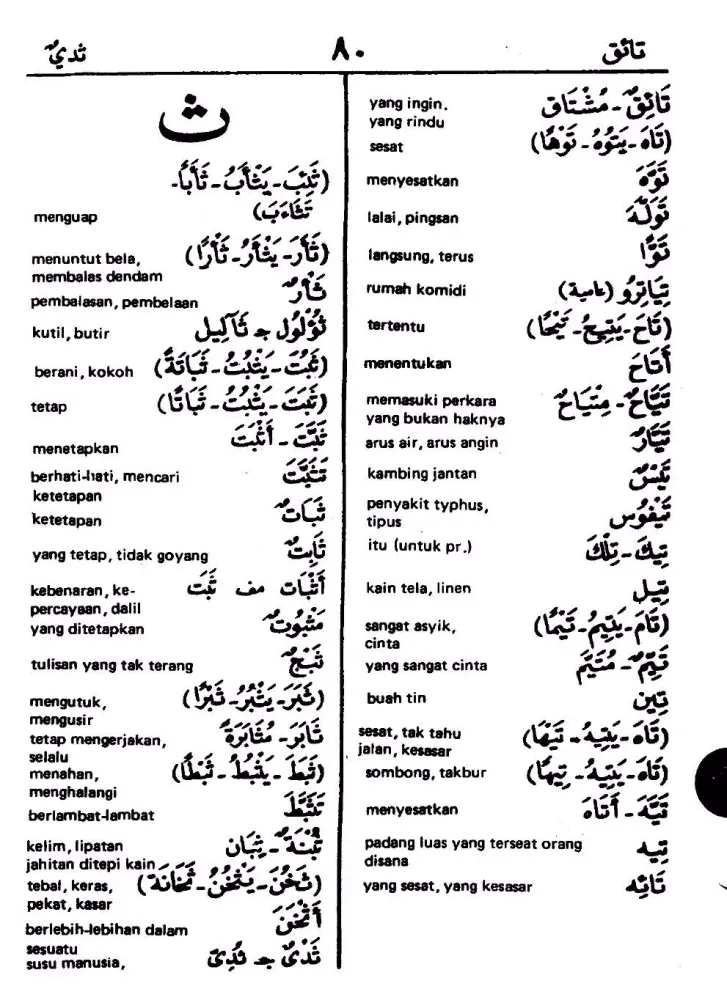 تائق ٨٠ ثديٌ
تَائِقٌ - مُشْتَاق yang ingin.
yang rindu
(تَاهَ - يَتُوْهُ - تَوْهًا) sesat
تَوَّهَ menyesatkan
تَوَلَّهَ lalai, pingsan
تَوًّا langsung, terus
تِيَاتِرُو (عامية) rumah komidi
(تَاحَ - يَتِيحُ - تَيْحًا) tertentu
أَتَاحَ menentukan
تَيَّاحٌ - مِتْيَاحٌ memasuki perkara
yang bukan haknya
تَيَّارٌ arus air, arus angin
تَيْسٌ kambing jantan
تَيْفُوْس penyakit typhus,
tipus
تِيْكَ - تِلْكَ itu (untuk pr.)
تِيل kain tela, linen
(تَامَ - يَتِيْمُ - تَيْمًا) sangat asyik,
cinta
تَيِّمٌ - مُتَيَّمٌ yang sangat cinta
تِين buah tin
(تَاهَ - يَتِيْهُ - تَيْهًا) sesat, tak tahu
jalan, kesasar
(تَاهَ - يَتِيْهُ - تِيهًا) sombong, takbur
تَيَّهَ - أَتَاهَ menyesatkan
تِيه padang luas yang terseat orang
disana
تَائِه yang sesat, yang kesasar
ث
(ثَئِبَ - يَثْأَبُ - ثَأَبًا -
تَثَاءَبَ) menguap
(ثَأَرَ - يَثْأَرُ - ثَأْرًا) menuntut bela,
membalas dendam
ثَأْرٌ pembalasan, pembelaan
ثُؤْلُوْل ج ثَآلِيل kutil, butir
(ثَبُتَ - يَثْبُتُ - ثَبَاتَةً) berani, kokoh
(ثَبَتَ - يَثْبُتُ - ثَبَاتًا) tetap
ثَبَّتَ - أَثْبَتَ menetapkan
تَثَبَّتَ berhati-hati, mencari
ketetapan
ثَبَاتٌ ketetapan
ثَابِتٌ yang tetap, tidak goyang
أَثْبَات مف ثَبَت kebenaran, ke-
percayaan, dalil
مَثْبُوْتٌ yang ditetapkan
ثَبَجٌ tulisan yang tak terang
(ثَبَرَ - يَثْبُرُ - ثَبْرًا) mengutuk,
mengusir
ثَابَرَ - مُثَابَرَةً tetap mengerjakan,
selalu
(ثَبَطَ - يَثْبُطُ - ثَبْطًا) menahan,
menghalangi
تَثَبَّطَ berlambat-lambat
ثُبْنَةٌ - ثِبَان kelim, lipatan
jahitan ditepi kain
(ثَخُنَ - يَثْخُنُ - ثَخَانَةً) tebal, keras,
pekat, kasar
أَثْخَنَ berlebih-lebihan dalam
sesuatu
ثَدْيٌ ج ثُدِيّ susu manusia,